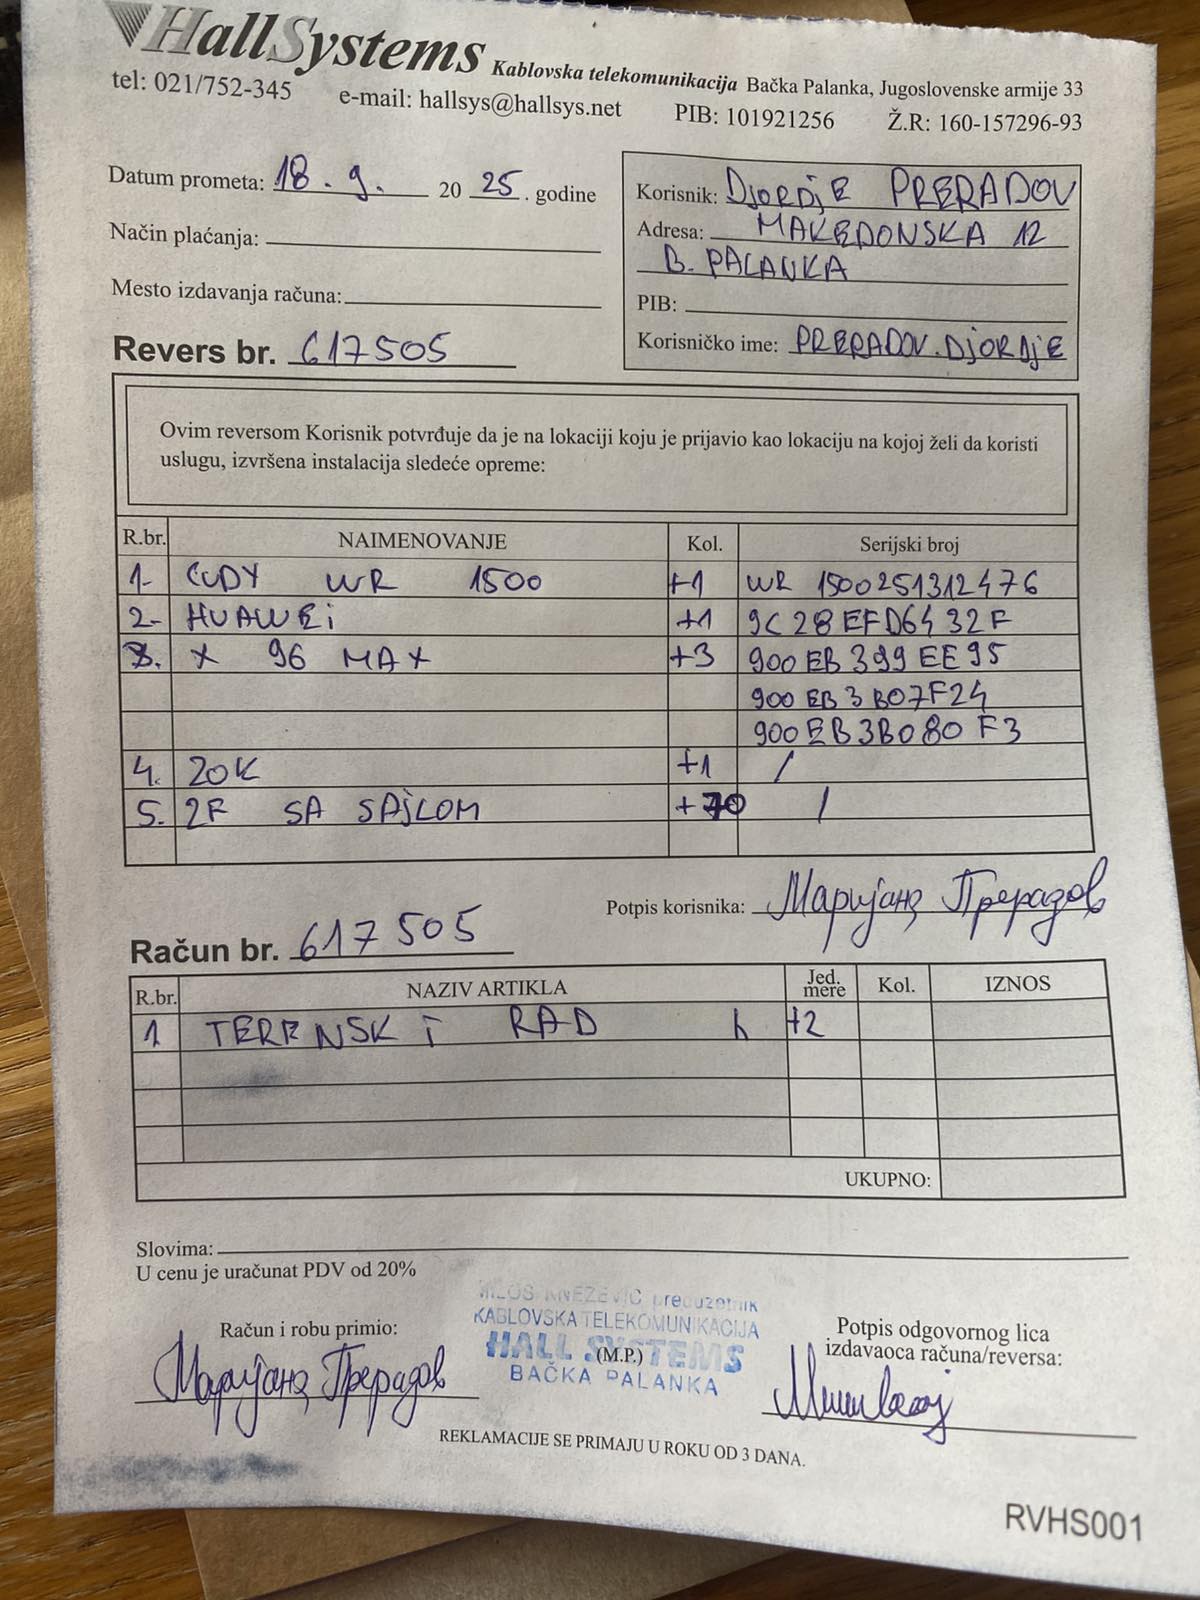 HallSystems Kablovska telekomunikacija Bačka Palanka, Jugoslovenske armije 33
tel: 021/752-345 e-mail: hallsys@hallsys.net PIB: 101921256 Ž.R: 160-157296-93
Datum prometa: 18. 9. 20 25. godine
Način plaćanja:
Mesto izdavanja računa:
Revers br. 617505
Korisnik: DjORDjE PRERADOV
Adresa: MAKEDONSKA 12
B. PALANKA
PIB:
Korisničko ime: PRERADOV.DjORDjE
Ovim reversom Korisnik potvrđuje da je na lokaciji koju je prijavio kao lokaciju na kojoj želi da koristi
uslugu, izvršena instalacija sledeće opreme:
R.br. NAIMENOVANJE Kol. Serijski broj
1- CUDY WR 1500 +1 WR 1500251312476
2- HUAWEi +1 9C28EFD6432F
3. X 96 MAX +3 900EB399EE95
900EB3B07F24
900EB3B080F3
4. 20K +1 /
5. 2F SA SAjLOM +70 /
Potpis korisnika: Маријана Прерадов
Račun br. 617505
R.br. NAZIV ARTIKLA Jed. mere Kol. IZNOS
1 TERENSKi RAD h +2
UKUPNO:
Slovima:
U cenu je uračunat PDV od 20%
Račun i robu primio:
Маријана Прерадов
MILOŠ KNEŽEVIĆ preduzetnik
KABLOVSKA TELEKOMUNIKACIJA
HALL SYSTEMS
(M.P.)
BAČKA PALANKA
Potpis odgovornog lica
izdavaoca računa/reversa:
REKLAMACIJE SE PRIMAJU U ROKU OD 3 DANA.
RVHS001